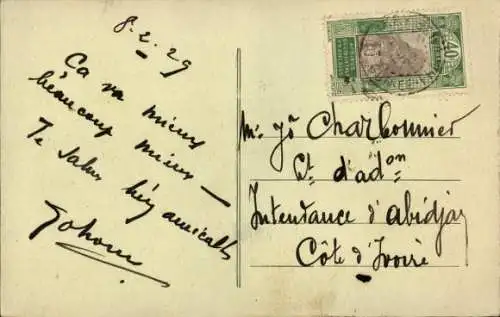 8.2.29
Ça va mieux
beaucoup mieux —
Je salue très amicalt
Mr Jn Charbonnier
Ct d'adon
Intendance d'Abidjan
Côte d'Ivoire
40